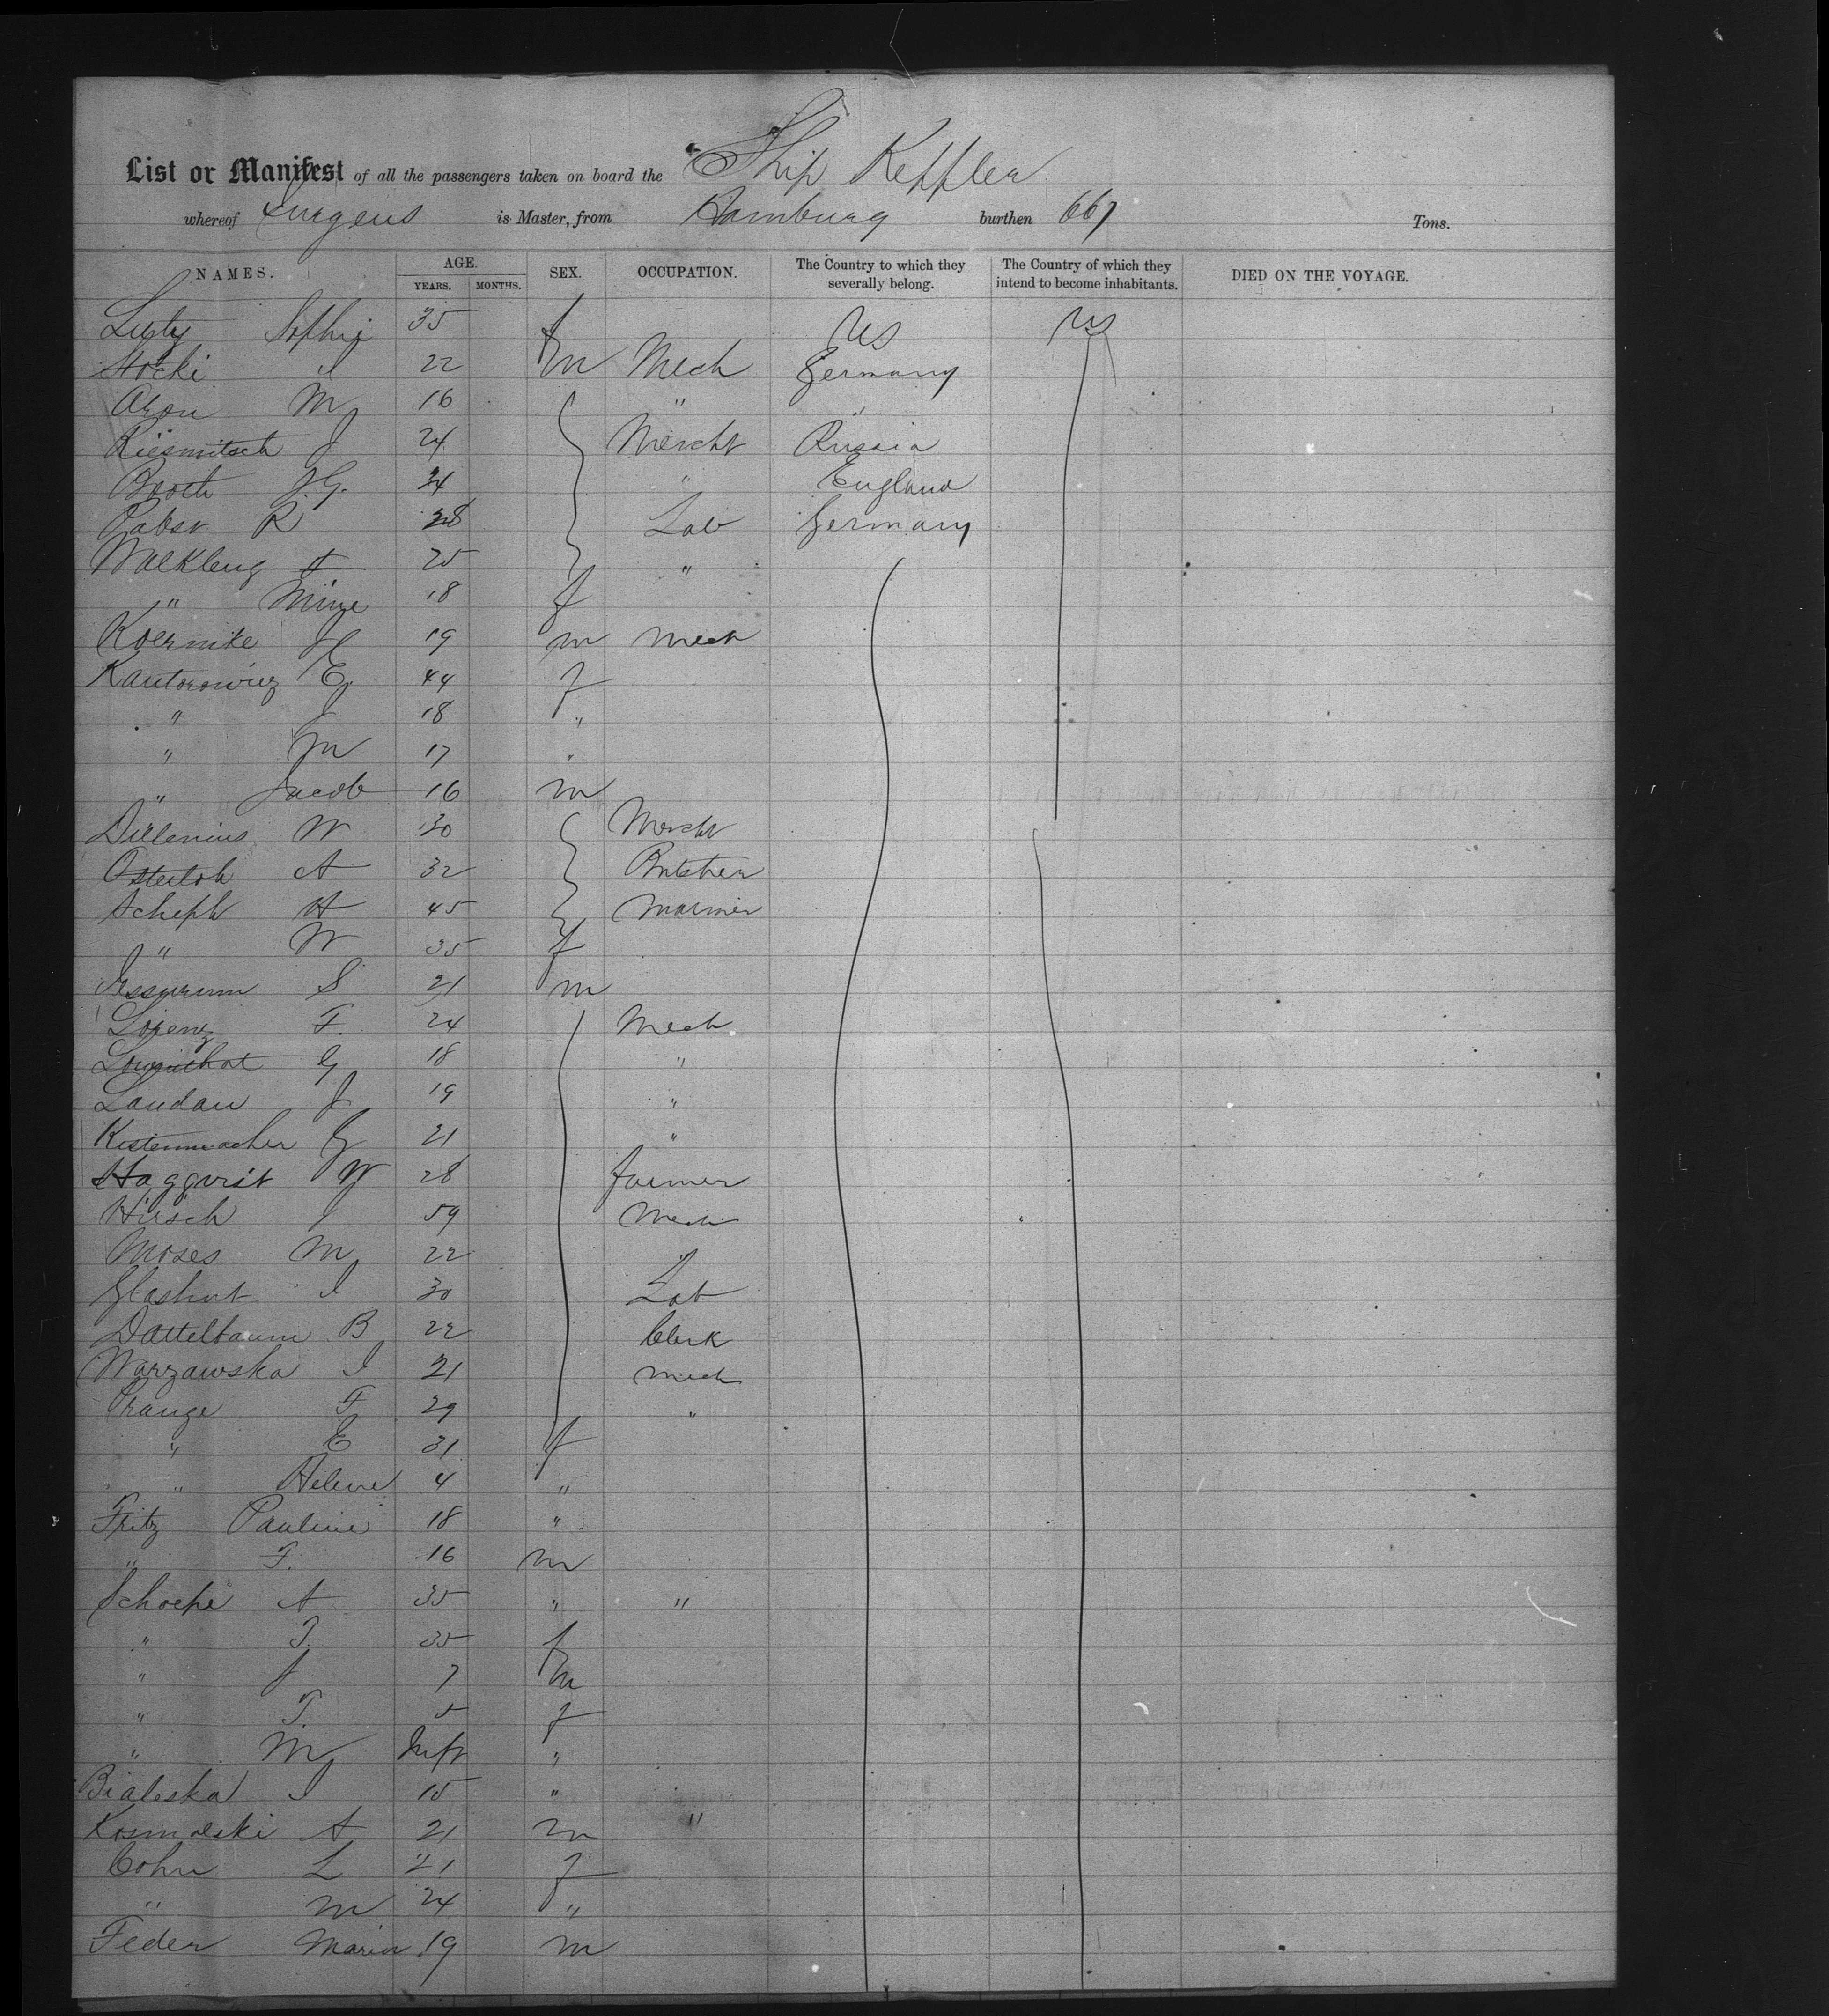 List or Manifest of all the passengers taken on board the Ship Keppler
whereof Jurgens is Master, from Hamburg burthen 667 Tons.
NAMES. AGE. YEARS. MONTHS. SEX. OCCUPATION. The Country to which they severally belong. The Country of which they intend to become inhabitants. DIED ON THE VOYAGE.
Sophie 35 f US US
Stocki I 22 m Mech Germany
Aron M 16 " "
J 24 Mercht Russia
Booth J.G. 34 " England
Pabst R 28 Lab Germany
Walkling A 25 "
" Mine 18 f
Koernike H 19 m Mech
Kantorowicz E. 44 f
" J 18 "
" M 17 "
" Jacob 16 m
Dillenius W 30 Mercht
Osterloh A 32 Butcher
Scheplt H 45 Mariner
" W 35 f
Jessurum S 21 m
Lorenz F. 24 Mech
Lowenthal G 18 "
Landau J 19 "
Kistenmacher G 21 "
Haggvist W 28 farmer
Hirsch J 59 Mech
Moses M 22
Glashut I 30 Lab
Dattelbaum B 22 Clerk
Warzawska I 21 Mech
Prange F 29 "
" E 31 f
" Helene 4 "
Fritz Pauline 18 "
" F. 16 m
Schoepe A 35 " "
" T. 35 f
" J 7 m
" T. 5 f
" M Inft "
Bialeska I 15 "
Kosmolski A 21 m "
Cohn L 21 f
" M 24 "
Feder Maria 19 m